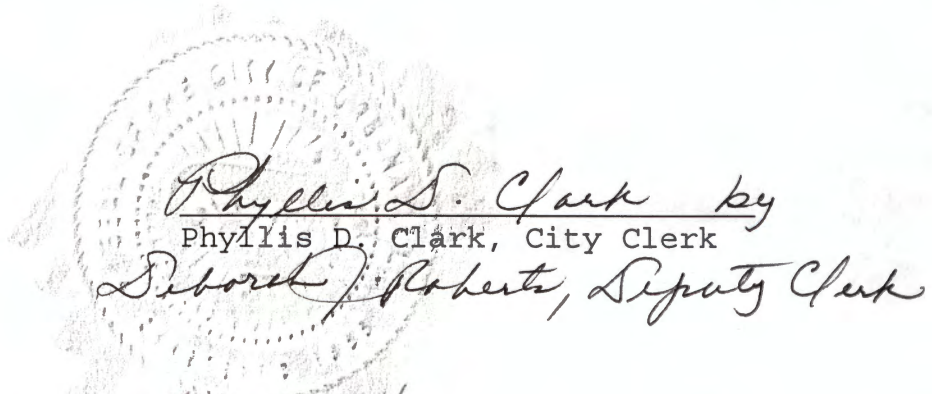 OF THE CITY OF
Phyllis D. Clark by
Phyllis D. Clark, City Clerk
Deborah J. Roberts, Deputy Clerk